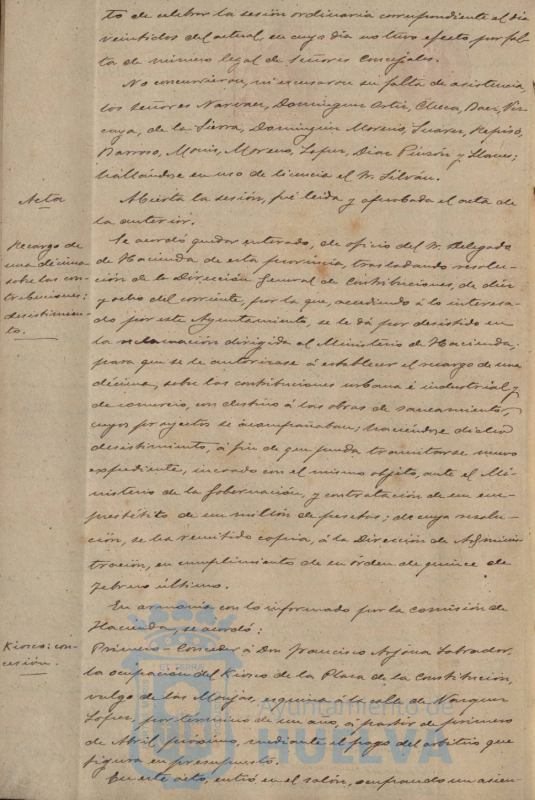 to de celebrar la sesión ordinaria correspondiente al dia
veintidos del actual, en cuyo dia no tuvo efecto por fal-
ta de número legal de señores Concejales.
No concurrieron, ni escusaron su falta de asistencia,
los señores Narvaez, Dominguez Ortiz, Checa, Baez, Viz-
caya, de la Sierra, Dominguez Moreno, Suarez, Repiso,
Barroso, Monis, Moreno, Lopez, Diaz Pinzón y Llanes;
hallándose en uso de licencia el Sr. Silván.
Acta
Abierta la sesión, fué leida y aprobada el acta de
la anterior.
Recargo de
una décima
sobre las con-
tribuciones:
desistimien-
to.
Se acordó quedar enterado, de oficio del Sr. Delegado
de Hacienda de esta provincia, trasladando resolu-
ción de la Dirección General de Contribuciones, de diez
y ocho del corriente, por la que, accediendo á lo interesa-
do por este Ayuntamiento, se le dá por desistido en
la reclamación dirigida al Ministerio de Hacienda,
para que se le autorizase á establecer el recargo de una
décima, sobre las contribuciones urbana é industrial y
de comercio, con destino á las obras de saneamiento,
cuyos proyectos se acompañaban; haciéndose dicho
desistimiento, á fin de que pueda tramitarse nuevo
expediente, incoado con el mismo objeto, ante el Mi-
nisterio de la Gobernación, y contratación de un em-
préstito de un millón de pesetas; de cuya resolu-
ción, se ha remitido copia, á la Dirección de Adminis-
tración, en cumplimiento de su órden de quince de
Febrero último.
En armonia con lo informado por la comisión de
Hacienda, se acordó:
Kiosco: con-
cesión.
Primero - Conceder á Don Francisco Arjona Labrador,
la ocupación del Kiosco de la Plaza de la Constitución,
vulgo de las Monjas, esquina á la calle de Vazquez
Lopez, por término de un año, á partir de primero
de Abril próximo, mediante el pago del arbitrio que
figura en presupuesto.
En este acto, entró en el salón, ocupando un asien-
Ayuntamiento de
HUELVA